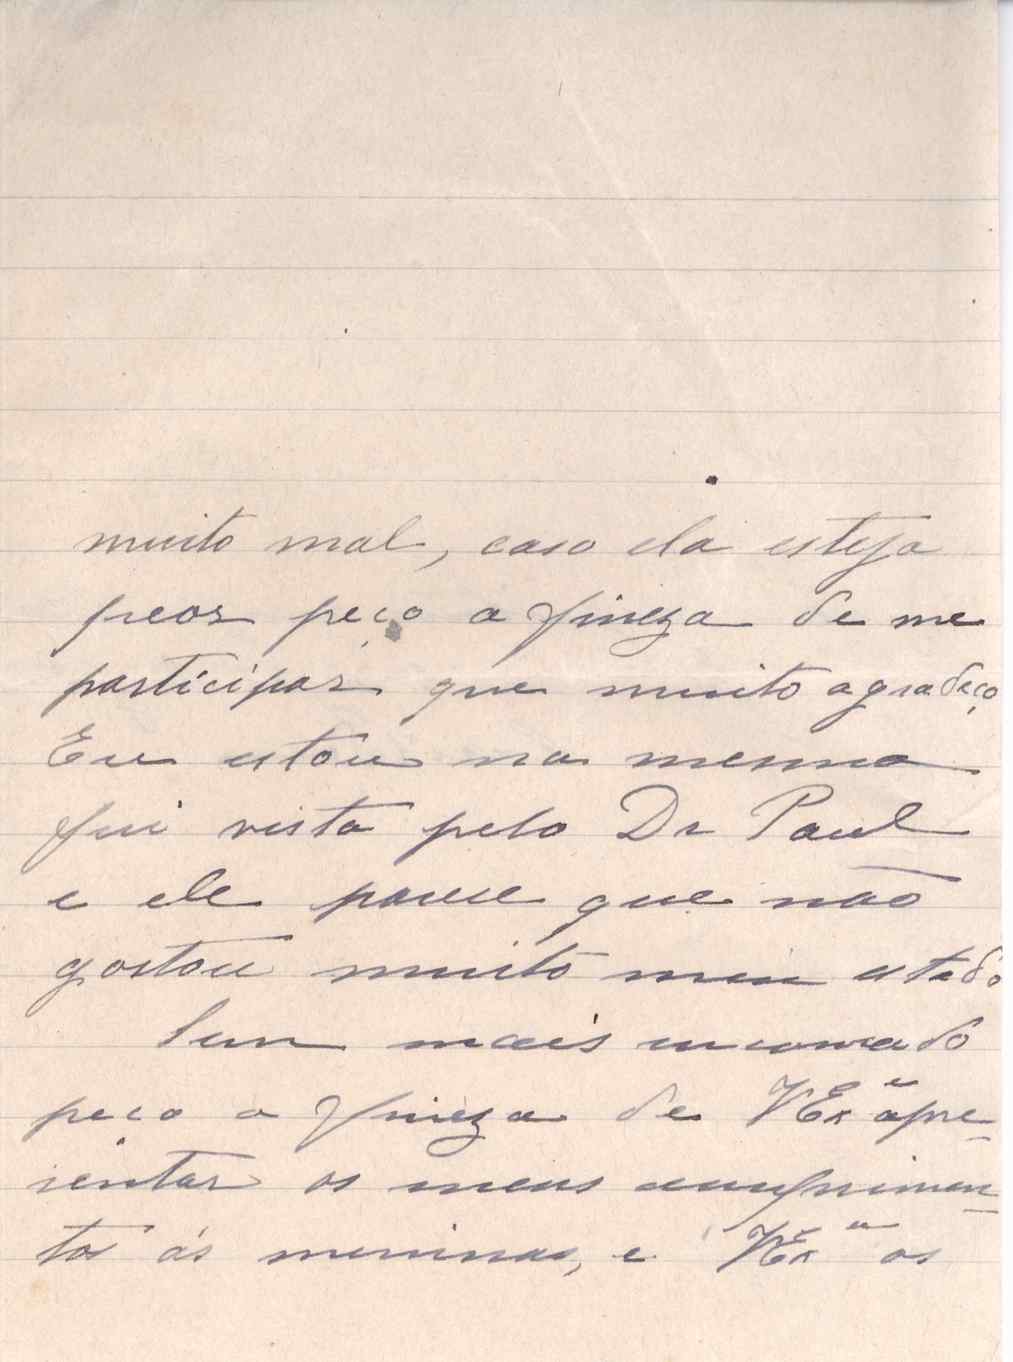 muito mal, caso ela esteja
peor peço a fineza de me
participar que muito agradeço
Eu estou na mesma
fui vista pelo Dr Paul
e ele parece que não
gostou muito meu estado
Sem mais incomodo
peco a fineza de VExª apre-
sentar os meus cumprimen-
tos ás meninas, e VExª os